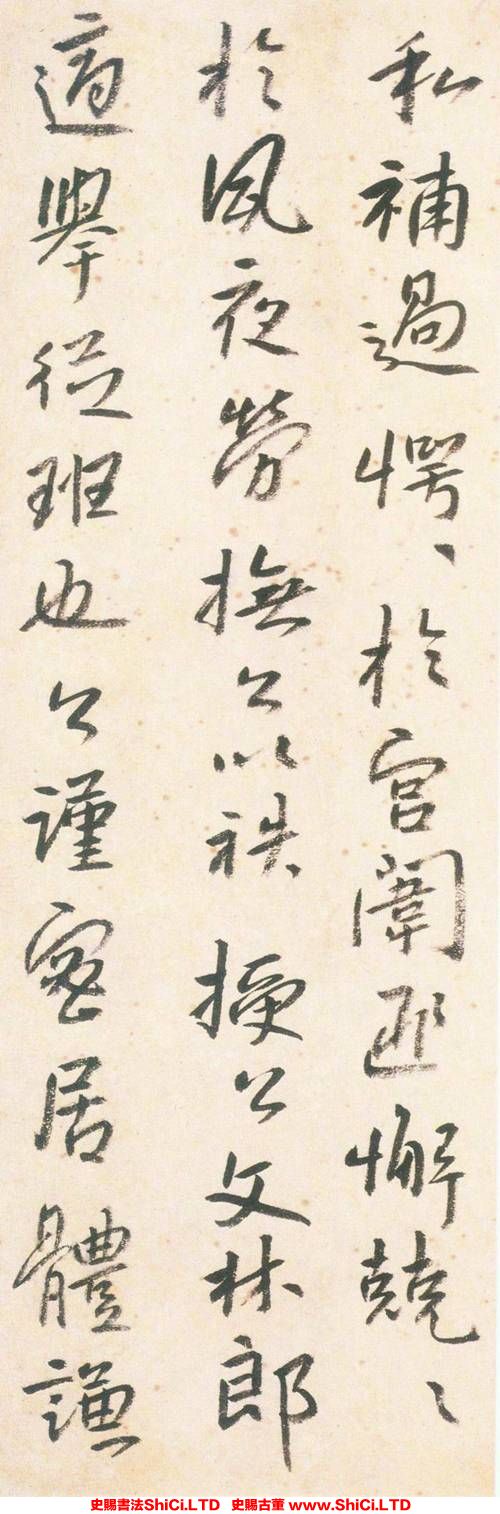 私補過愕〻於宮闈匪懈兢〻
於夙夜勞撫公以袟授公文林郎
適舉從班也公謹密居體謙
史賜書法ShiCi.LTD 史賜古董 www.ShiCi.LTD